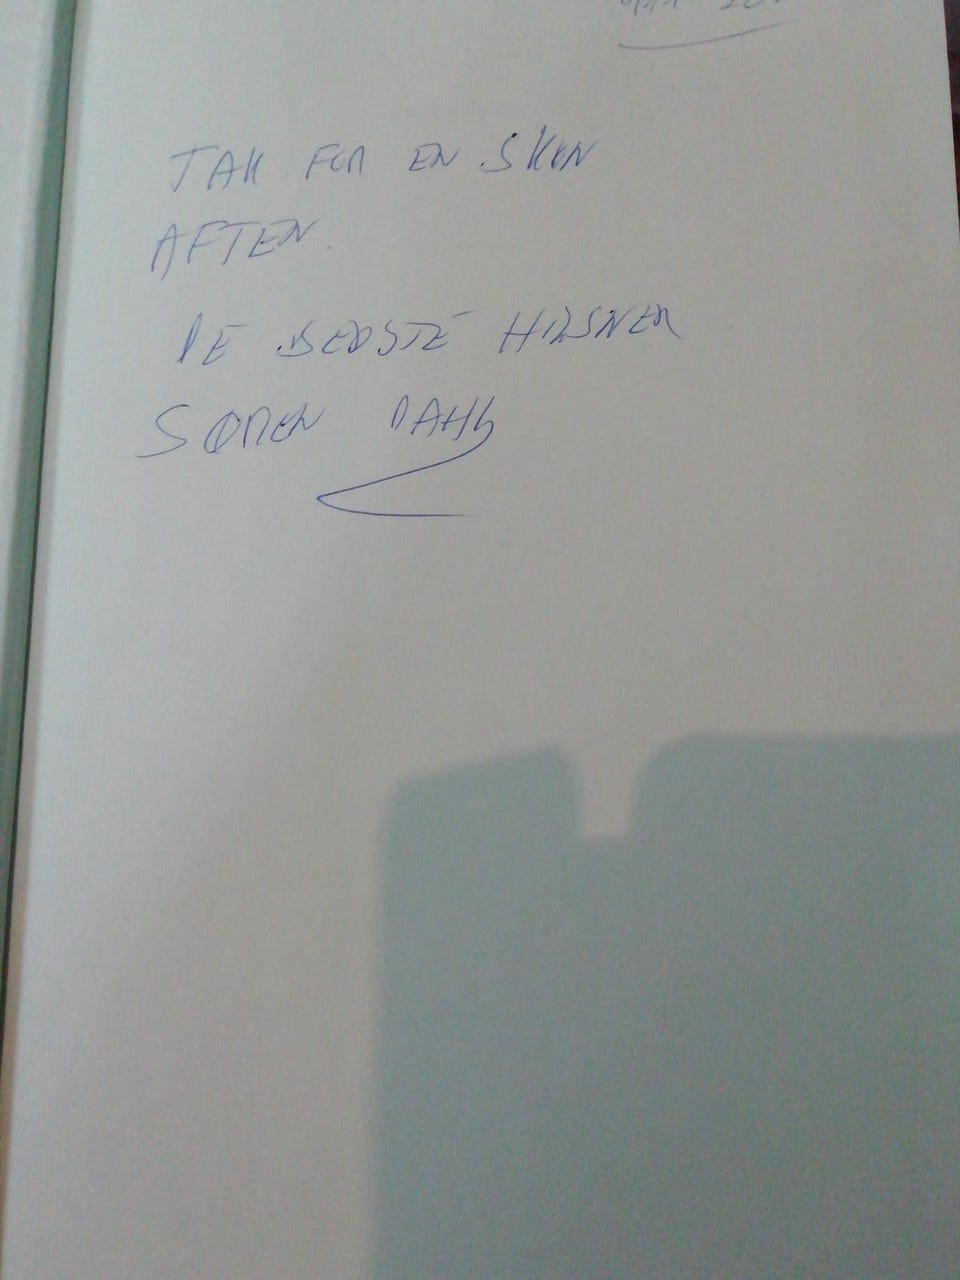 TAK FOR EN SKØN
AFTEN.
DE BEDSTE HILSNER
SØREN DAHL